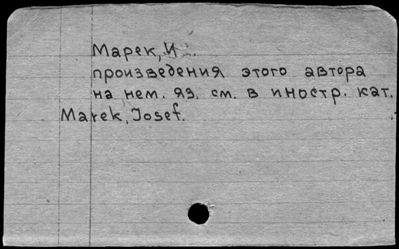 Марек, И.
произведения этого автора
на нем. яз. см. в иностр. кат.
Marek, Josef.